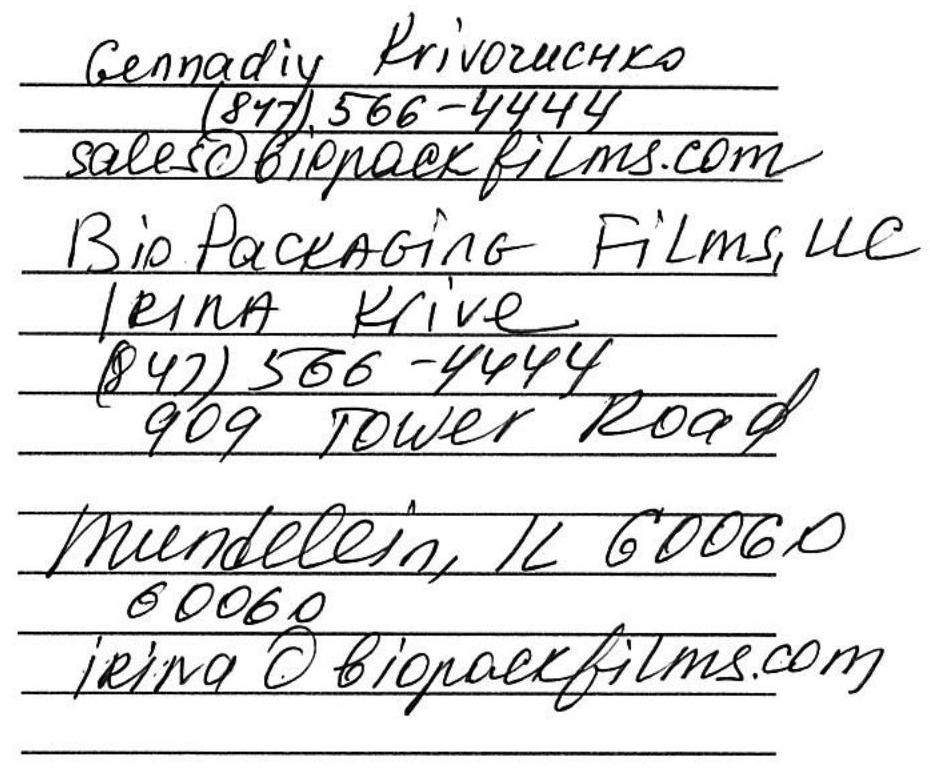 Gennadiy Krivoruchko
(847) 566-4444
sales@biopackfilms.com
Bio Packaging Films, LLC
Irina Krive
(847) 566-4444
909 Tower Road
Mundelein, IL 60060
60060
irina@biopackfilms.com